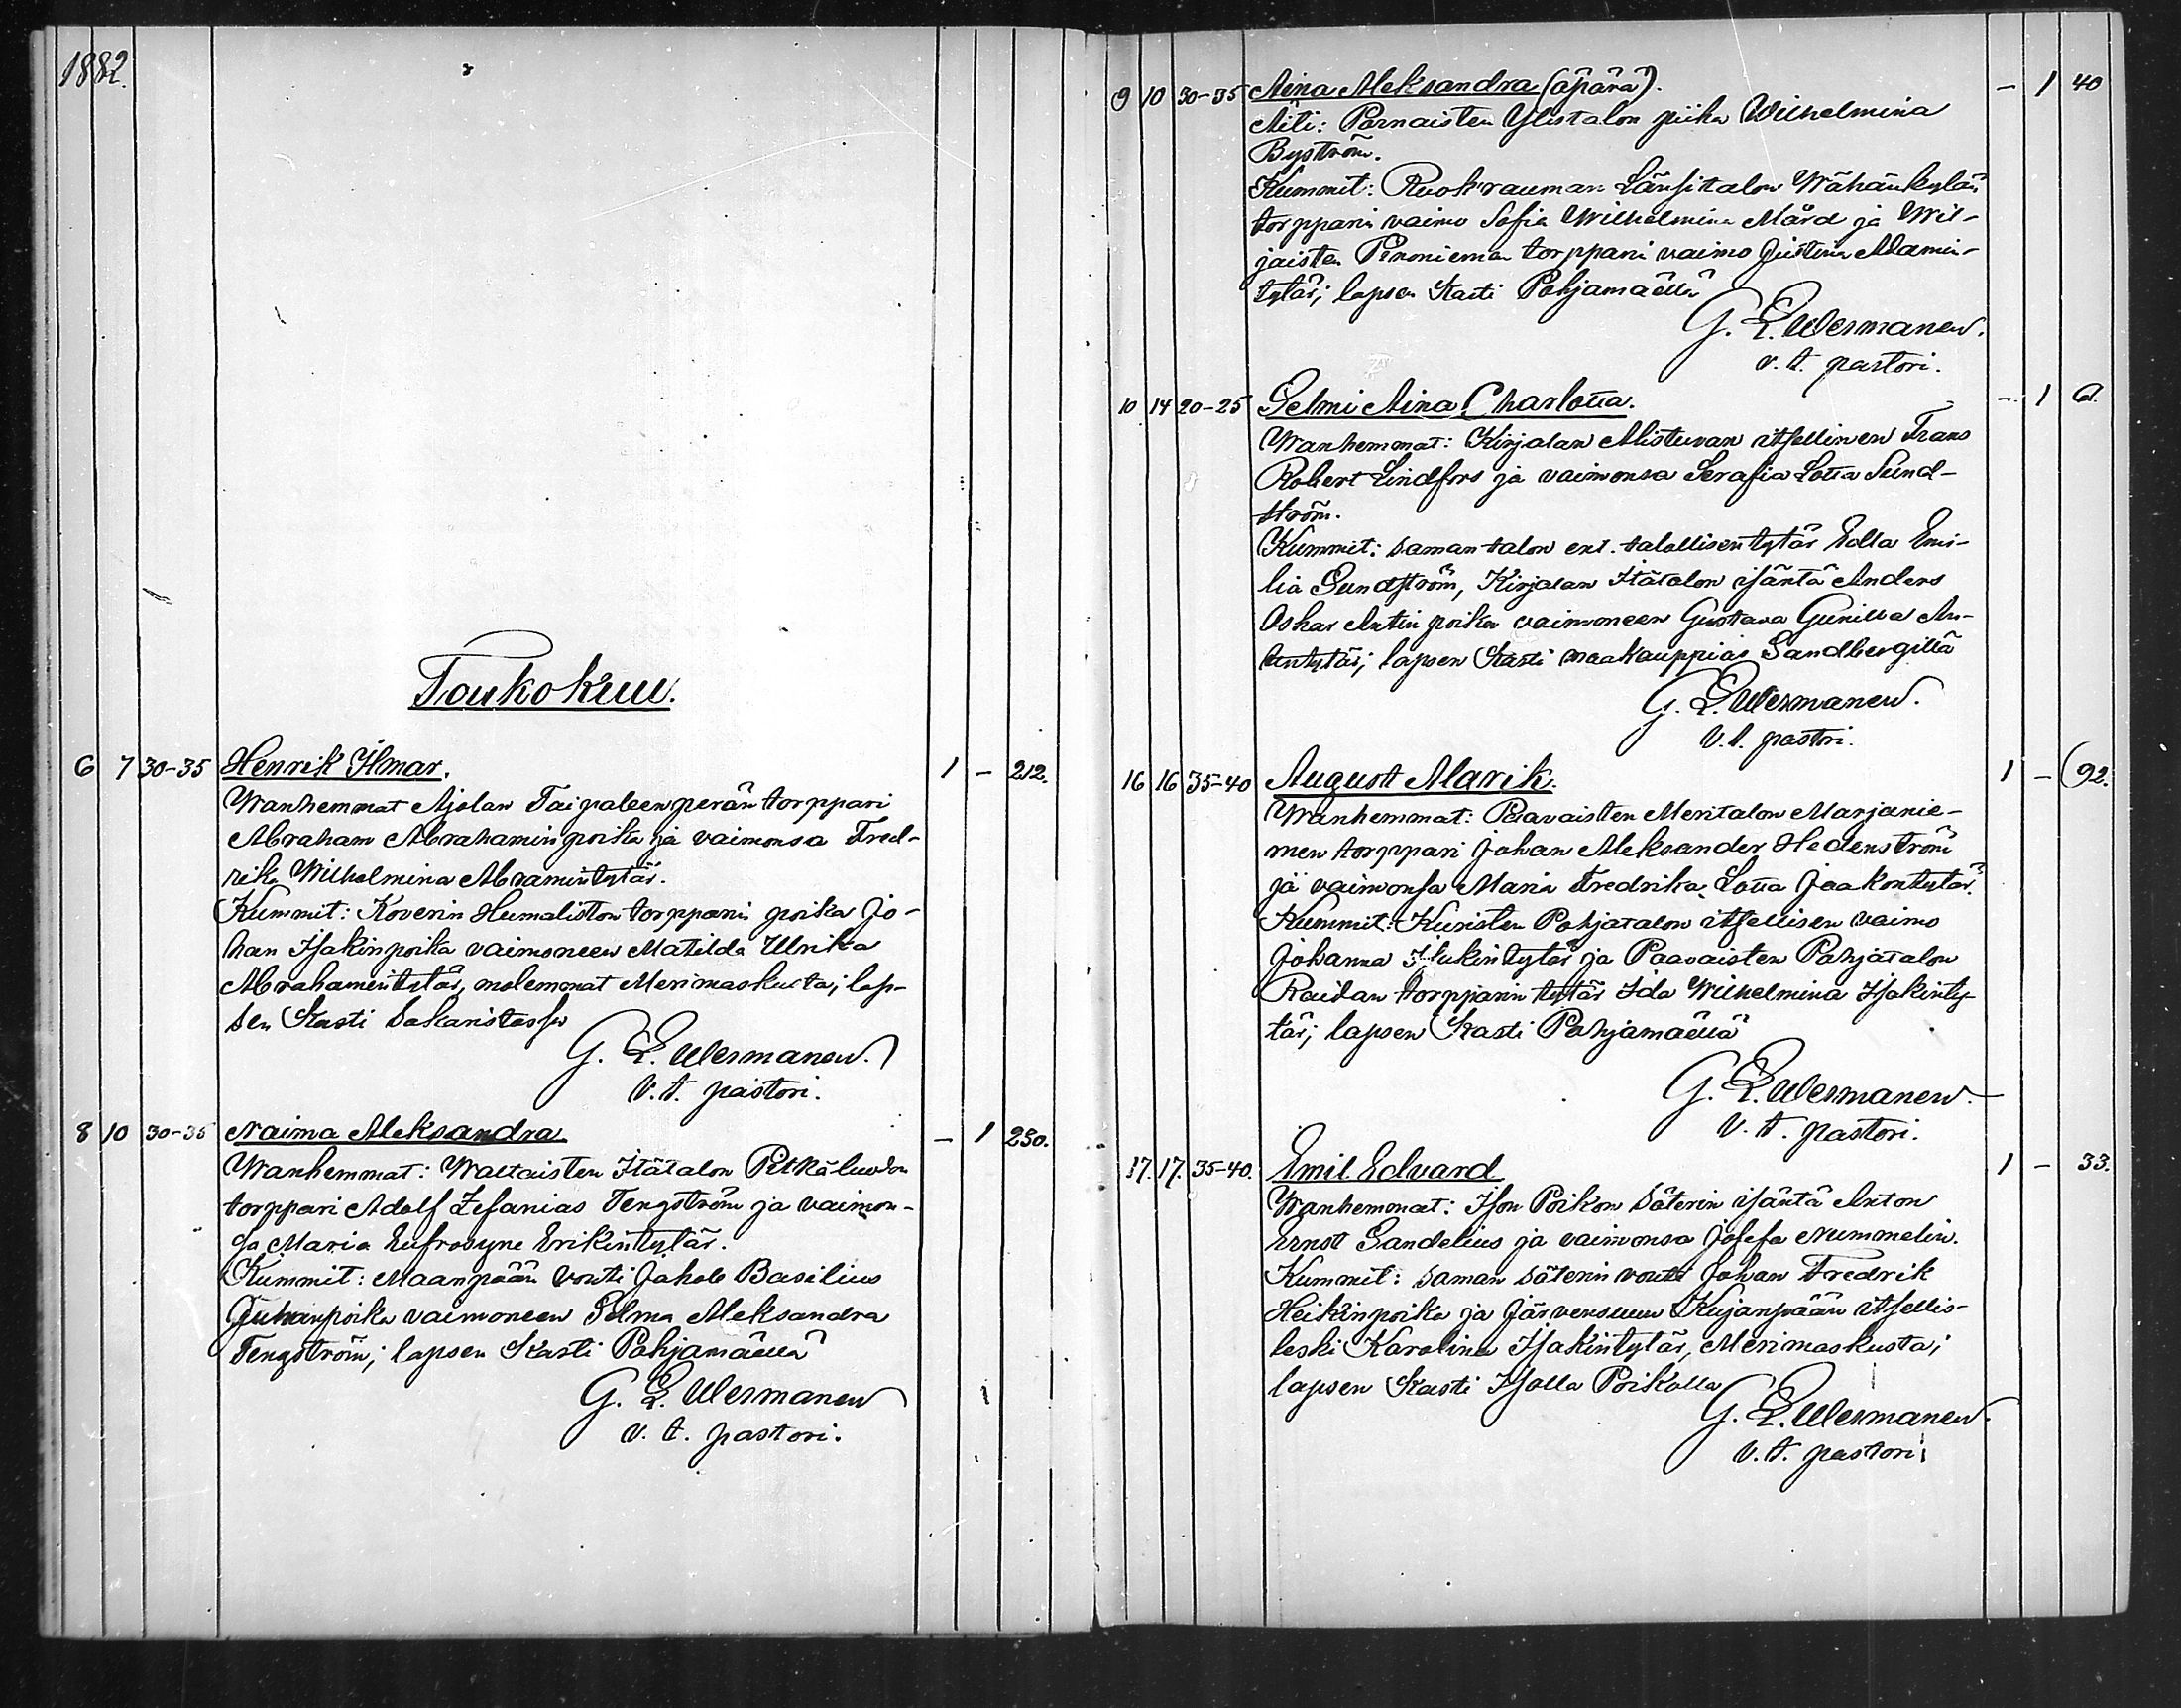 1882.
Toukokuu.
6 7 30-35 Henrik Ilmar. 1 - 212.
Wanhemmat Ajolan Taipaleenperän torppari
Abraham Abrahaminpoika ja vaimonsa Fred-
rika Wilhelmina Abramintytär.
Kummit: Koverin Humaliston torpparin poika Jo-
han Isakinpoika vaimoneen Matilda Ulrika
Abrahamintytär, molemmat Merimaskusta; lap-
sen Kasti Sakaristossa
G. E. Wermanen.
v. t. pastori.
8 10 30-35 Naima Aleksandra - 1 230.
Wanhemmat: Waltaisten Itätalon Pitkäluodon
torppari Adolf Zefanias Tengström ja vaimon-
sa Maria Eufrosyne Erikintytär.
Kummit: Maanpään vouti Jakob Basilius
Juhanpoika vaimoneen Selma Aleksandra
Tengström; lapsen Kasti Pohjamäellä
G. E. Wermanen
v. t. pastori.
9 10 30-35 Aina Aleksandra (äpärä). - 1 40
Äiti: Parnaisten Ylistalon piika Wilhelmina
Byström.
Kummit: Ruokrauman Länsitalon Wähänkylän
torpparin vaimo Sofia Wilhelmina Mård ja Wil-
jaisten Penoniemen torpparin vaimo Justina Adamin-
tytär; lapsen Kasti Pohjamäellä
G. E. Wermanen.
v. t. pastori.
10 14 20-25 Selmi Aina Charlotta. - 1 61.
Wanhemmat: Kirjalan Alistuvan itsellinen Frans
Robert Lindfors ja vaimonsa Serafia Lotta Sund-
ström.
Kummit: saman talon ent. talollisen tytär Edla Emi-
lia Sundström, Kirjalan Itätalon isäntä Anders
Oskar Antinpoika vaimoneen Gustava Gunilla An-
tintytär; lapsen Kasti maakauppias Sandbergillä
G. E. Wermanen.
v. t. pastori.
16 16 35-40 August Alarik. 1 - 92.
Wanhemmat: Paavaisten Meritalon Marjanie-
men torppari Johan Aleksander Hedenström
ja vaimonsa Maria Fredrika Lotta Jaakontytär.
Kummit: Kuristen Pohjatalon itsellisen vaimo
Johanna Isakintytär ja Paavaisten Pohjatalon
Raidan torpparin tytär Ida Wilhelmina Isakinty-
tär; lapsen Kasti Pohjamäellä
G. E. Wermanen.
v. t. pastori.
17. 17. 35-40. Emil Edvard 1 - 33.
Wanhemmat: Ison Poikon säterin isäntä Anton
Ernst Sandelius ja vaimonsa Josefa Nummelin.
Kummit: saman säterin vouti Johan Fredrik
Heikinpoika ja Järvensuun Kujanpään itsellis-
leski Karolina Isakintytär, Merimaskusta;
lapsen Kasti Isolla Poikolla
G. E. Wermanen.
v. t. pastori.